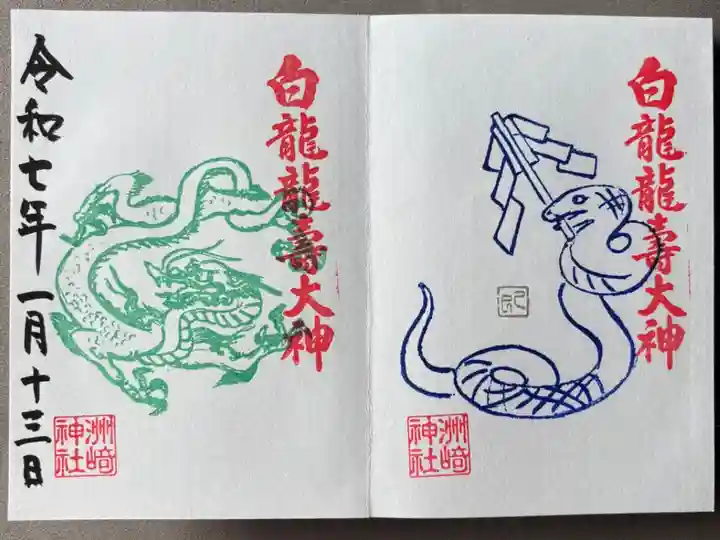 白龍龍壽大神
洲崎神社
白龍龍壽大神
令和七年一月十三日
洲崎神社